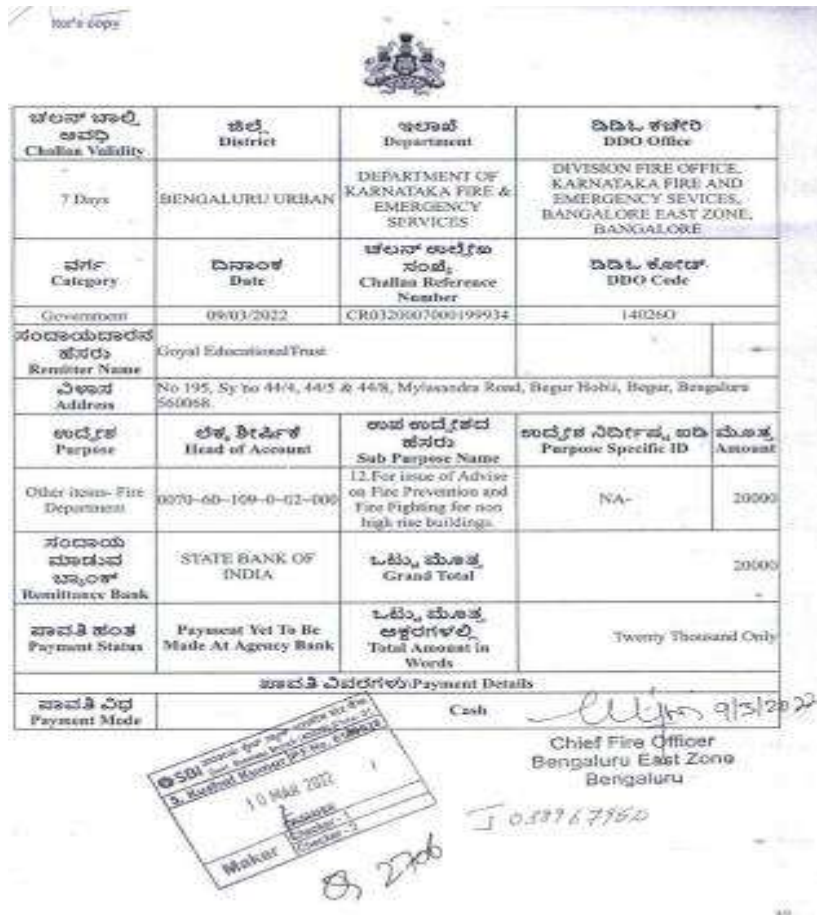 copy
ಚಲನ್ ಚಾಲ್ತಿ ಅವಧಿ
Challan Validity
ಜಿಲ್ಲೆ
District
ಇಲಾಖೆ
Department
ಡಿಡಿಓ ಕಚೇರಿ
DDO Office
7 Days
BENGALURU URBAN
DEPARTMENT OF
KARNATAKA FIRE &
EMERGENCY
SERVICES
DIVISION FIRE OFFICE,
KARNATAKA FIRE AND
EMERGENCY SEVICES,
BANGALORE EAST ZONE,
BANGALORE
ವರ್ಗ
Category
ದಿನಾಂಕ
Date
ಚಲನ್ ಉಲ್ಲೇಖ
ಸಂಖ್ಯೆ
Challan Reference
Number
ಡಿಡಿಓ ಕೋಡ್
DDO Code
Government
09/03/2022
CR0320007000199934
14026O
ಸಂದಾಯದಾರನ
ಹೆಸರು
Remitter Name
Goyal EducationalTrust
ವಿಳಾಸ
Address
No 195, Sy no 44/4, 44/5 & 44/8, Mylasandra Road, Begur Hobli, Begur, Bengaluru
560068.
ಉದ್ದೇಶ
Purpose
ಲೆಕ್ಕ ಶೀರ್ಷಿಕೆ
Head of Account
ಉಪ ಉದ್ದೇಶದ
ಹೆಸರು
Sub Purpose Name
ಉದ್ದೇಶ ನಿರ್ದಿಷ್ಟ ಐಡಿ
Purpose Specific ID
ಮೊತ್ತ
Amount
Other items- Fire
Department
0070-60-109-0-02-000
12.For issue of Advise
on Fire Prevention and
Fire Fighting for non
high rise buildings.
NA-
20000
ಸಂದಾಯ
ಮಾಡುವ
ಬ್ಯಾಂಕ್
Remittance Bank
STATE BANK OF
INDIA
ಒಟ್ಟು ಮೊತ್ತ
Grand Total
20000
ಪಾವತಿ ಹಂತ
Payment Status
Payment Yet To Be
Made At Agency Bank
ಒಟ್ಟು ಮೊತ್ತ
ಅಕ್ಷರಗಳಲ್ಲಿ
Total Amount in
Words
Twenty Thousand Only
ಪಾವತಿ ವಿವರಗಳು/Payment Details
ಪಾವತಿ ವಿಧ
Payment Mode
Cash
9/3/2022
Chief Fire Officer
Bengaluru East Zone
Bengaluru
SBI
10 MAR 2022
Checker-1
Checker-2
Maker
2706